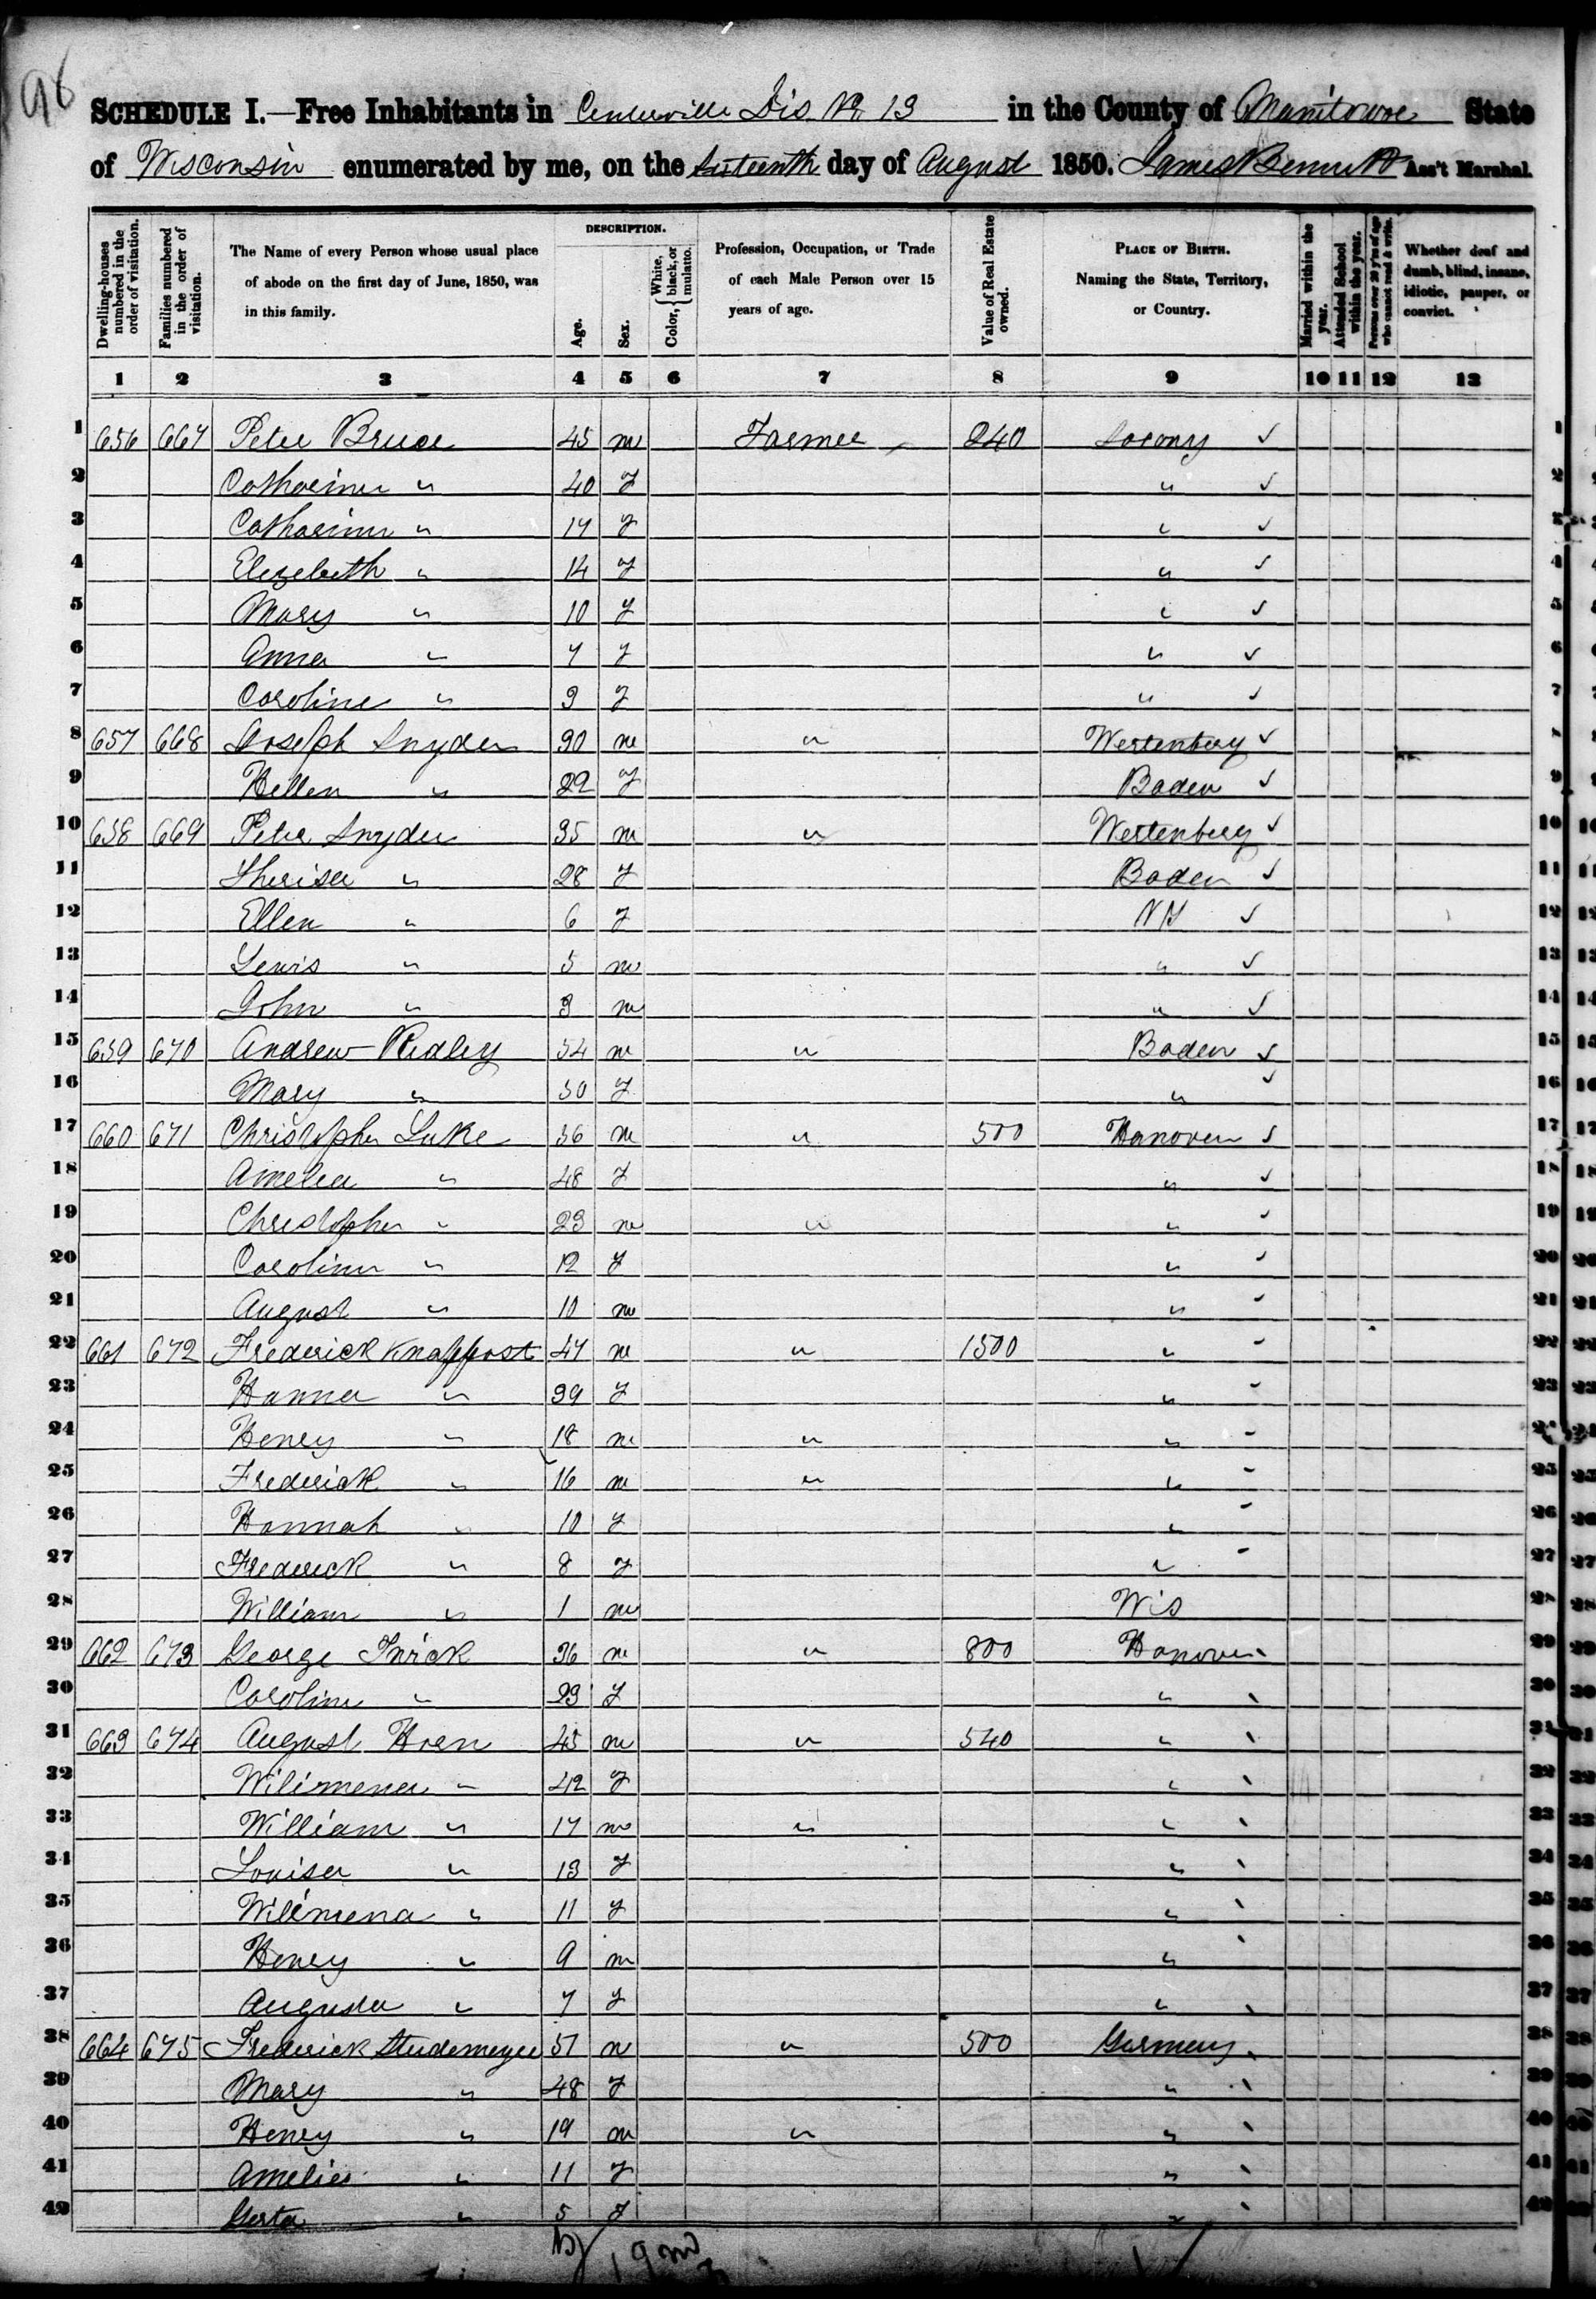 98
SCHEDULE I.—Free Inhabitants in Centerville Dis No 13 in the County of Manitowoc State
of Wisconsin enumerated by me, on the Sixteenth day of August 1850. James Bennett Ass't Marshal.
Dwelling-houses numbered in the order of visitation.
Families numbered in the order of visitation.
The Name of every Person whose usual place of abode on the first day of June, 1850, was in this family.
DESCRIPTION.
Age.
Sex.
Color, { White, black, or mulatto.
Profession, Occupation, or Trade of each Male Person over 15 years of age.
Value of Real Estate owned.
PLACE OF BIRTH. Naming the State, Territory, or Country.
Married within the year.
Attended School within the year.
Persons over 20 y'rs of age who cannot read & write.
Whether deaf and dumb, blind, insane, idiotic, pauper, or convict.
1 2 3 4 5 6 7 8 9 10 11 12 13
1 656 667 Peter Bruce 45 m Farmer 240 Saxony ✓ 1
2 Catharine " 40 f " ✓ 2
3 Catharine " 17 f " ✓ 3
4 Elezebeth " 14 f " ✓ 4
5 Mary " 10 f " ✓ 5
6 Anna " 7 f " ✓ 6
7 Caroline " 3 f " ✓ 7
8 657 668 Joseph Snyder 30 m " Wertenberg ✓ 8
9 Hellen " 22 f Baden ✓ 9
10 658 669 Peter Snyder 35 m " Wertenberg ✓ 10
11 Therisa " 28 f Baden ✓ 11
12 Ellen " 6 f NY ✓ 12
13 Lewis " 5 m " ✓ 13
14 John " 3 m " ✓ 14
15 659 670 Andrew Ridley 54 m " Baden ✓ 15
16 Mary " 50 f " ✓ 16
17 660 671 Christopher Luke 56 m " 500 Hanover ✓ 17
18 Amelia " 48 f " ✓ 18
19 Christopher " 23 m " " ✓ 19
20 Caroline " 12 f " ✓ 20
21 August " 10 m " 21
22 661 672 Frederick Knappost 47 m " 1500 " 22
23 Hanna " 39 f " 23
24 Henry " 18 m " " 24
25 Frederick " 16 m " " 25
26 Hannah " 10 f " 26
27 Frederick " 8 f " 27
28 William " 1 m Wis 28
29 662 673 George 36 m " 800 Hanover 29
30 Caroline " 23 f " 30
31 663 674 August Hren 45 m " 540 " 31
32 Wilimena " 42 f " 32
33 William " 17 m " " 33
34 Louisa " 13 f " 34
35 Wilimena " 11 f " 35
36 Henry " 9 m " 36
37 Augusta " 7 f " 37
38 664 675 Frederick Studemeyer 51 m " 500 Germany 38
39 Mary " 48 f " 39
40 Henry " 19 m " " 40
41 Amelies " 11 f " 41
42 Gusta " 5 f " 42